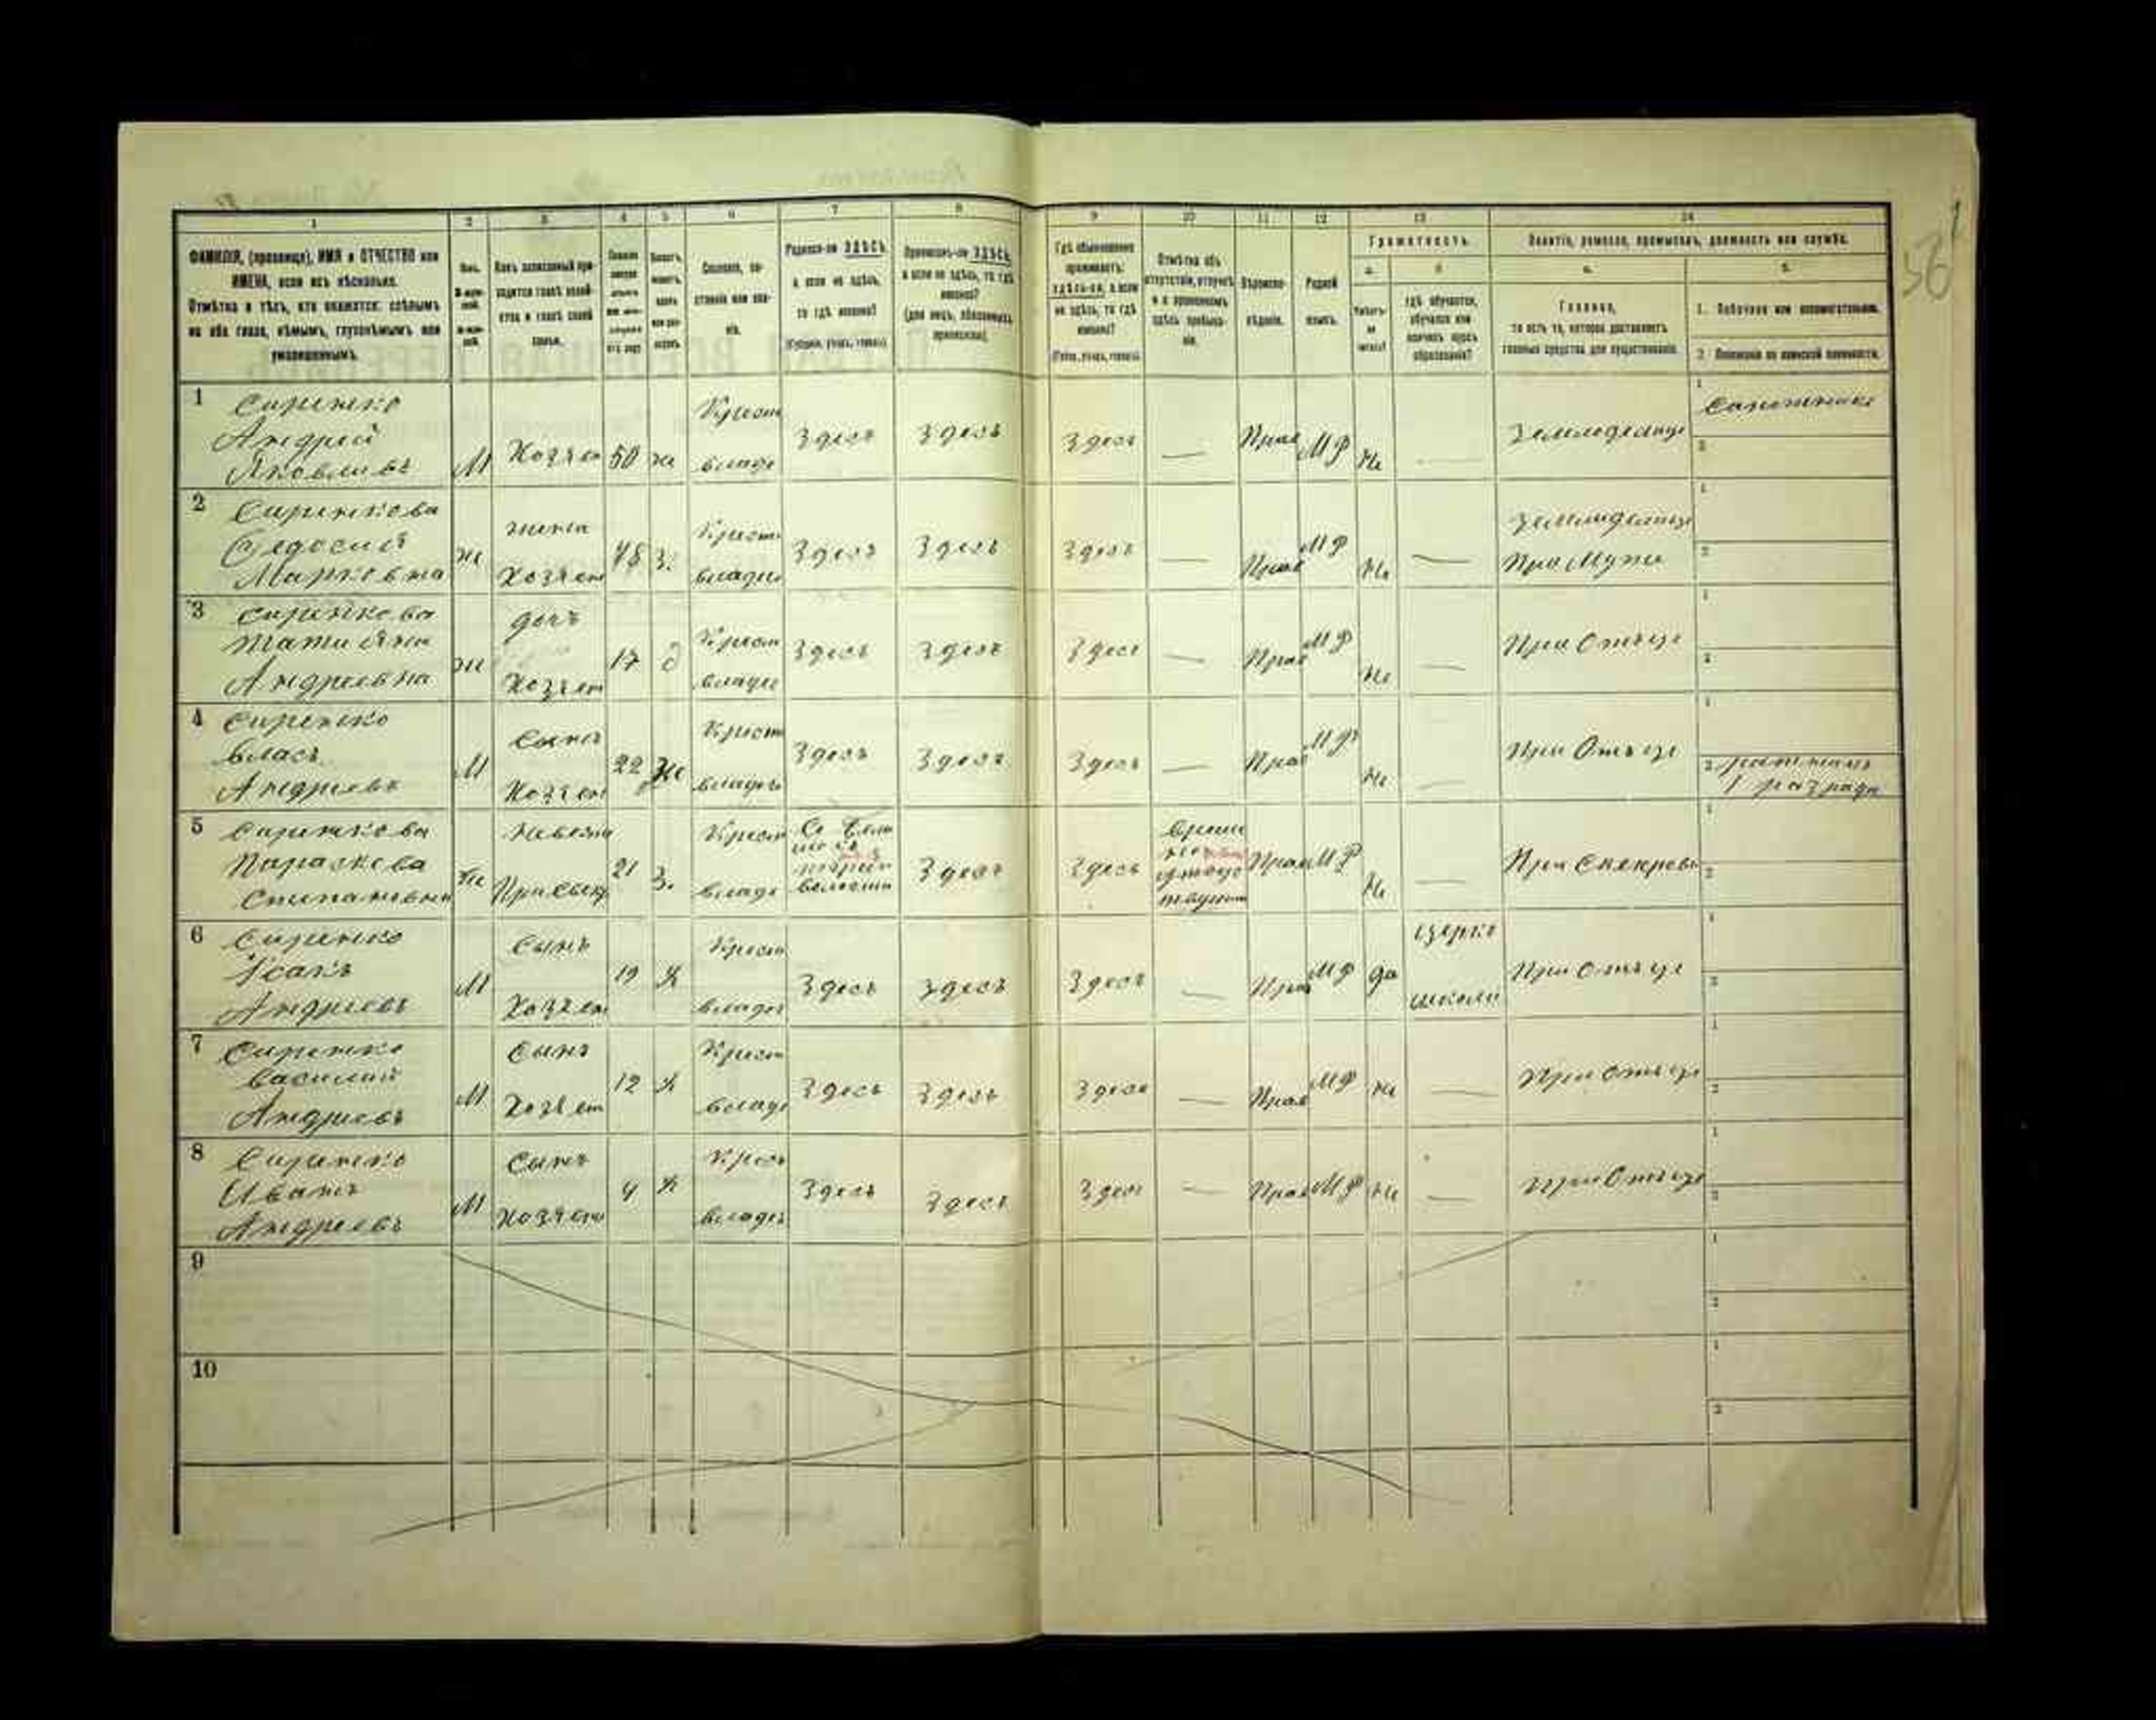 1 2 3 4 5 6 7 8 9 10 11 12 13 14
ФАМИЛІЯ, (прозвище), ИМЯ и ОТЧЕСТВО или
ИМЕНА, если ихъ нѣсколько.
Отмѣтка о тѣхъ, кто окажется: слѣпымъ
на оба глаза, нѣмымъ, глухонѣмымъ или
умалишеннымъ.
Полъ.
Какъ записанный при-
ходится главѣ хозяй-
ства и главѣ своей
семьи.
Сословіе, со-
стояніе или зва-
ніе.
Родился-ли ЗДѢСЬ,
а если не здѣсь,
то гдѣ именно?
(Губернія, уѣздъ, городъ).
Приписанъ-ли ЗДѢСЬ,
а если не здѣсь, то гдѣ
именно?
(для лицъ, обязанныхъ
припискою).
Гдѣ обыкновенно
проживаетъ:
здѣсь-ли, а если
не здѣсь, то гдѣ
именно?
(Губ., уѣздъ, городъ).
Отмѣтка объ
отсутствіи, отлучкѣ
и о временномъ
здѣсь пребыва-
ніи.
Вѣроиспо-
вѣданіе.
Родной
языкъ.
Грамотность.
а. б.
Умѣетъ-
ли
читать?
Гдѣ обучается,
обучался или
кончилъ курсъ
образованія?
Занятіе, ремесло, промыселъ, должность или служба.
а. б.
Главное,
то есть то, которое доставляетъ
главныя средства для существованія.
1. Побочное или вспомогательное.
2. Положеніе по воинской повинности.
1 Сиренко
Андрей
Яковливъ
М Хозяен 50 ж Крест владе Здесь Здесь Здесь — Прав МР Не — Земледелице
1 Сапожнике
2
2 Сиренкова
Федосия
Марковна
ж жена Хозяен 48 З. Крест владе Здесь Здесь Здесь — Прав МР Не — Земледелице При Мужи
1
2
3 Сиренкова
Татияна
Андриевна
ж дочь Хозяен 17 д Крест владе Здесь Здесь Здесь — Прав МР Не — При Отьце
1
2
4 Сиренко
Власъ
Андриевъ
М Сынъ Хозяен 22 Же Крест владе Здесь Здесь Здесь — Прав МР Не — При Отьце
1
2 ратникъ
1 разряда
5 Сиренкова
Параскева
Степановна
же Невеста При Сыне 21 З. Крест владе волости Здесь Здесь Прав МР Не — При Свекрове
1
2
6 Сиренко
Ісакъ
Андриевъ
М Сынъ Хозяен 19 Х Крест владе Здесь Здесь Здесь — Прав МР да церко школи При Отьце
1
2
7 Сиренко
Василий
Андриевъ
М Сынъ Хозяен 12 Х Крест владе Здесь Здесь Здесь — Прав МР Не — При Отьце
1
2
8 Сиренко
Иванъ
Андриевъ
М Сынъ Хозяен 9 Х Крес владе Здесь Здесь Здес — Прав МР Не — При Отьце
1
2
9
1
2
10
1
2
56